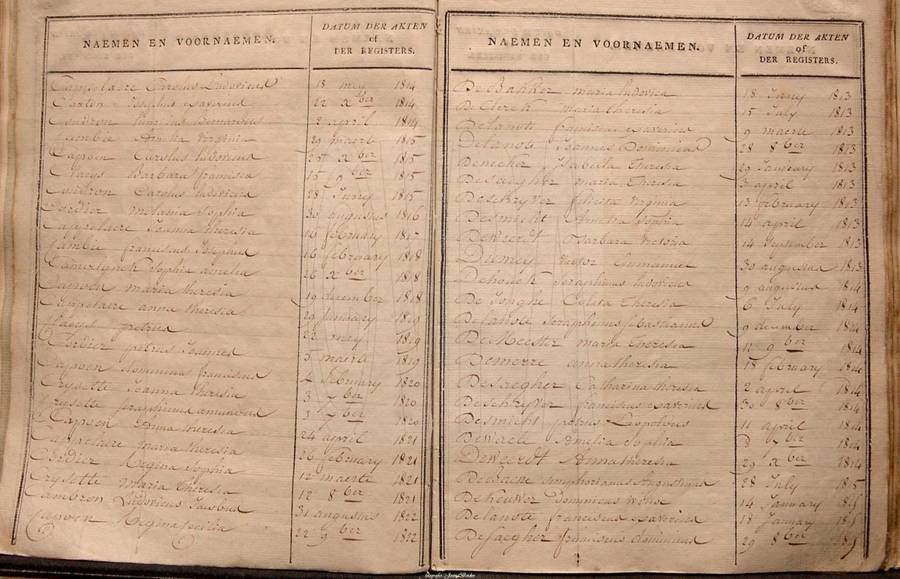 NAEMEN EN VOORNAEMEN.
DATUM DER AKTEN
of
DER REGISTERS.
Cappelaire Carolus Ludovicus 18 mey 1814
Josephus Xaverius 22 Xber 1814
Bernardus 2 april 1814
Cambie Amelia Virginia 29 maerte 1815
Capoen Carolus Ludovicus 25 Xber 1815
Claeys Barbara francisca 15 9ber 1815
Carolus Ludovicus 28 1815
Cordier melania Sophia 30 augustus 1816
Cappelaire Joanna theresia 16 february 1817
Cambie franciscus Josephus 16 february 1818
Camerlynck Sophia amelia 26 Xber 1818
Capoen maria theresia 19 december 1818
Cappelaire anna theresia 29 January 1819
Claeys petrus 22 mey 1819
Cordier petrus Joannes 3 maerte 1819
Capoen Dominicus franciscus 2 february 1820
Crysette Joanna theresia 3 7ber 1820
Crysette Seraphinus amandus 3 7ber 1820
Capoen Anna theresia 24 april 1821
Cappelaire maria theresia 26 february 1821
Cordier Regina Sophia 12 maerte 1821
Crysette Maria theresia 12 8ber 1821
Cambron Ludovicus Jacobus 31 augustus 1822
Capoen Regina 22 9ber 1822
NAEMEN EN VOORNAEMEN.
DATUM DER AKTEN
of
DER REGISTERS.
De Bakker maria ludovica 18 Janry 1813
De Clerck maria theresia 15 July 1813
Delanote franciscus Xaverius 9 maerte 1813
Delanote Joannes Dominicus 28 8ber 1813
Denecker Isabella Theresia 29 January 1813
Desaegher maria Theresia 3 april 1813
Deschryver Virginia 13 february 1813
Desmicht Amelia Sophia 14 april 1813
Deweerdt Barbara Victoria 14 September 1813
Dumey Victor Emmanuel 30 augustus 1813
Dehouck Seraphinus ludovicus 9 augustus 1814
De Jonghe Coleta Theresia 6 July 1814
Delanote Seraphinus Sebastianus 9 december 1814
De Meester maria Theresia 12 9ber 1814
Demerre anna theresia 18 february 1814
Desaegher Catharina theresia 2 april 1814
Deschryver franciscus Xaverius 30 8ber 1814
Desmicht petrus Leopoldus 11 april 1814
Dewaele Amelia Sophia 7ber 1814
Deweerdt Anna theresia 29 Xber 1814
28 July 1815
Dominicus 14 January
Delanote franciscus Xaverius 18 January
Desaegher franciscus dominicus 29 8ber